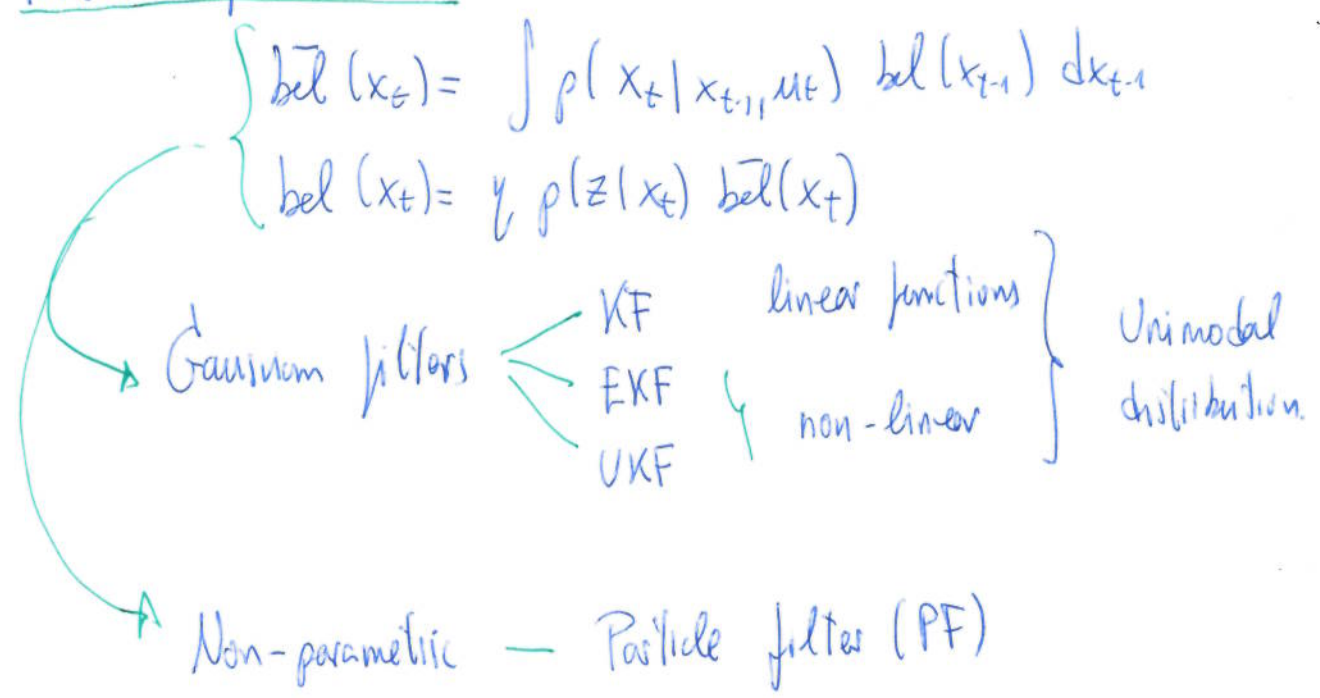 bel̅ (x_t) = ∫ p(x_t | x_{t-1}, u_t) bel(x_{t-1}) dx_{t-1}
bel (x_t) = η p(z | x_t) bel̅(x_t)
Gaussian filters
KF linear functions
EKF
non-linear
UKF
Unimodal
distribution.
Non-parametric — Particle filter (PF)